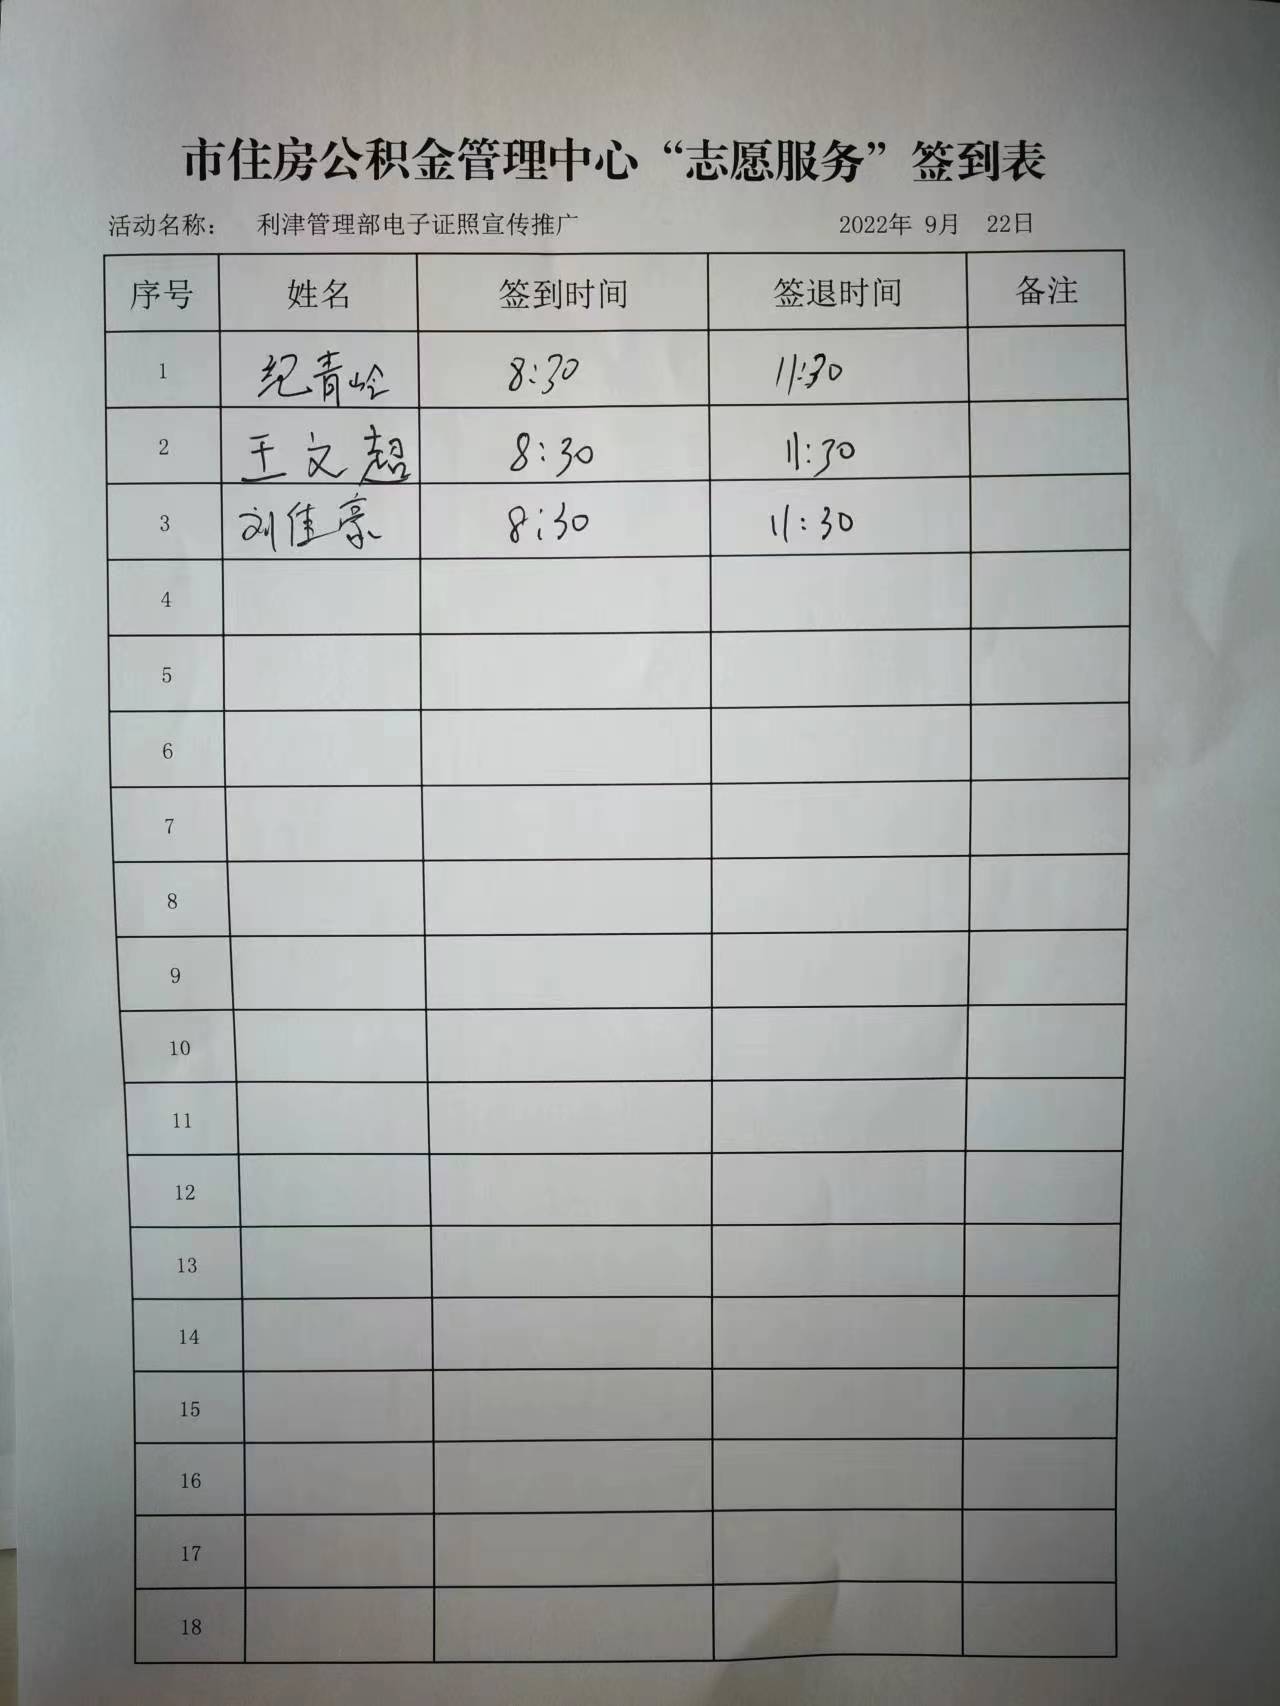 市住房公积金管理中心“志愿服务”签到表
活动名称： 利津管理部电子证照宣传推广 2022年 9月 22日
序号 姓名 签到时间 签退时间 备注
1 纪青岭 8:30 11:30
2 王文超 8:30 11:30
3 刘佳豪 8:30 11:30
4
5
6
7
8
9
10
11
12
13
14
15
16
17
18